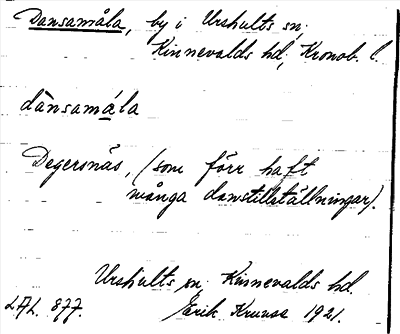 Dansamåla, by i Urshults sn,
Kinnevalds hd, Kronob. l.
dánsamåla
Degersnäs, (som förr haft
många danstillställningar).
Urshults sn, Kinnevalds hd.
LAL. 877. Erik Kruuse 1921.